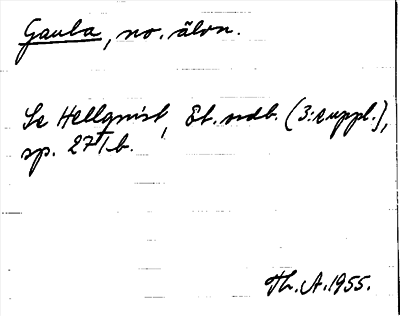 Gaula, no. älvn.
Se Hellquist, Et. ordb. (3:e uppl.),
sp. 271 b.
Th. A. 1955.